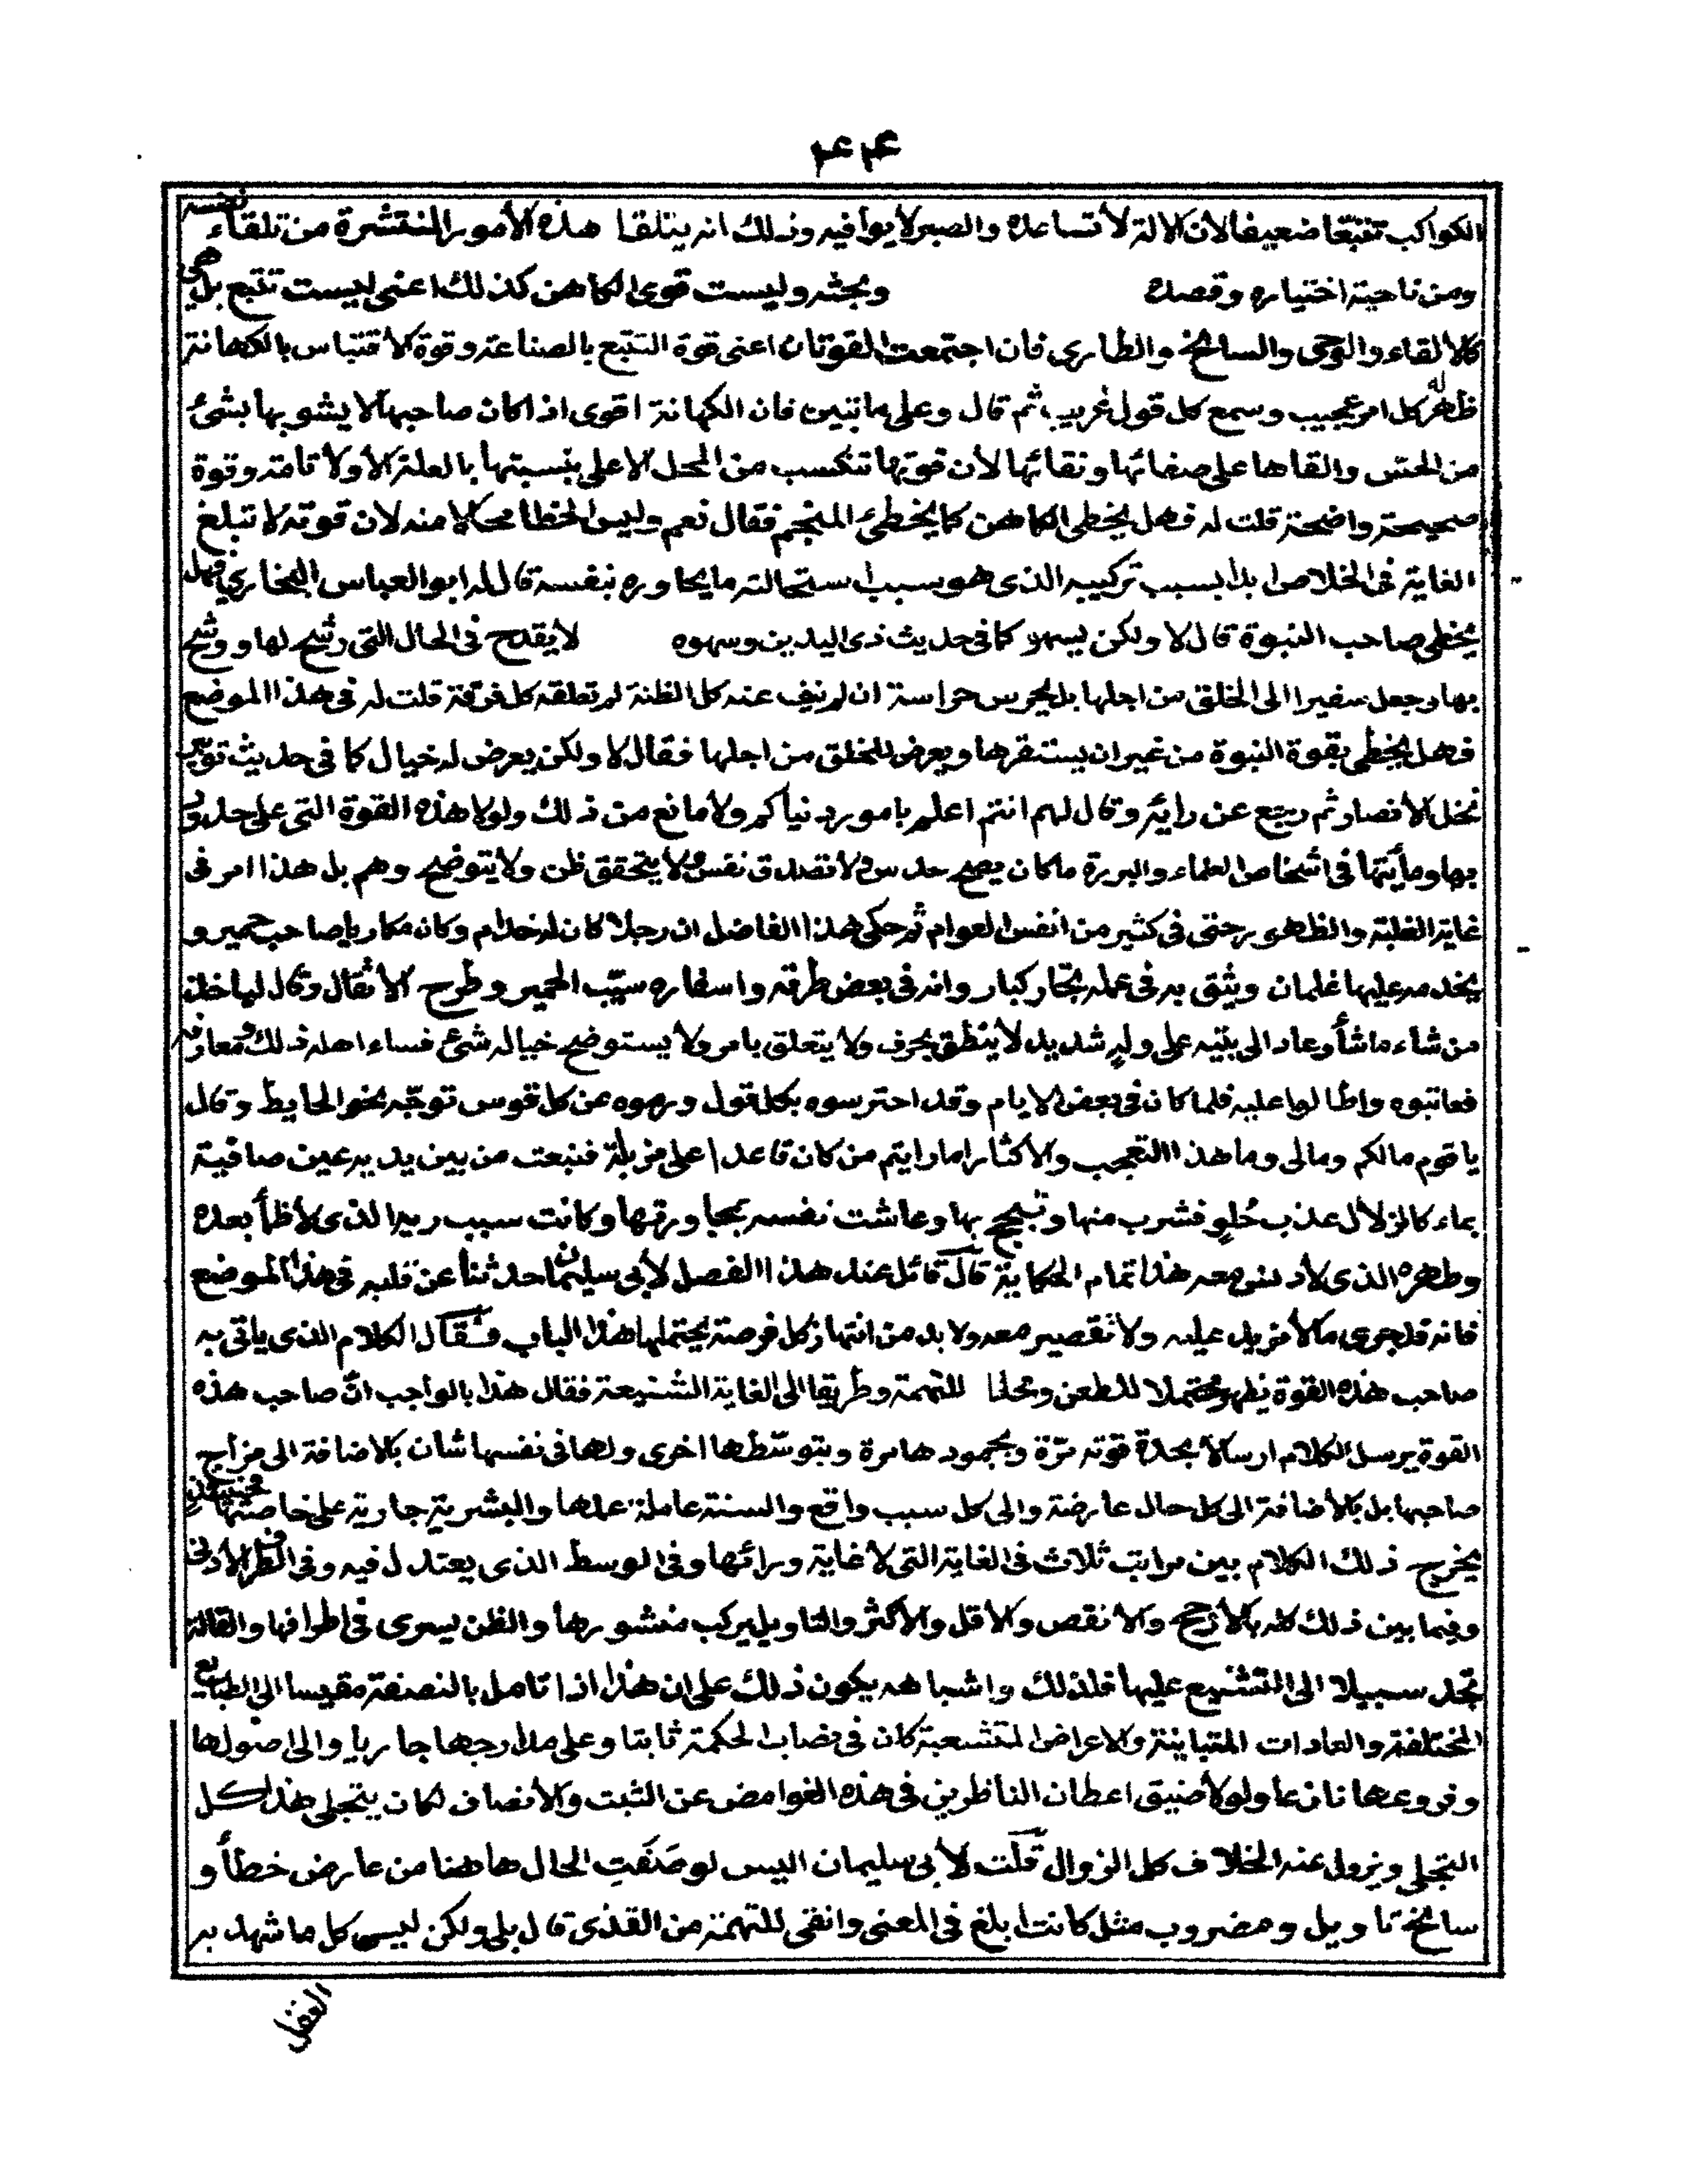 ٤٤
الكواكب تتبّعا ضعيفا لان الالة لا تساعده والصبر لا يوافيه وذلك انه يتلقا هذه الأمور المنتشرة من تلقاء نفسه
ومن ناحية اختياره وقصده وبحثه وليست قوى الكاهن كذلك اعنى ليست تتبع بل هى
كالالقاء والوحى والسانح والطارى فان اجتمعت القوتان اعنى قوة التتبع بالصناعة وقوة الاقتباس بالكهانة
ظهر له كل امر عجيب وسمع كل قول غريب ثم قال وعلى ما تبين فان الكهانة اقوى اذا كان صاحبها لا يشوبها بشئ
من الحس والقاها على صفائها ونقائها لأن قوتها تنكسب من المحل الاعلى بنسبتها بالعلة الأولا تامة وقوة
صحيحة واضحة قلت له فهل يخطى الكاهن كما يخطئ المنجم فقال نعم وليس الخطا محالا منه لان قوته لا تبلغ
الغاية فى الخلاص ابدا بسبب تركيبه الذى هو سبب استحالته مايحاوره بنفسه قال له ابو العباس البخارى فهل
يخطى صاحب النبوة قال لا ولكن يسهو كما فى حديث ذى اليدين وسهوه لا يقدح فى الحال التى رشح لها ووشح
بها وجعل سفيرا الى الخلق من اجلها بل يحرس حراسة ان لم تنف عنه كل الظنة لم تطلقه كل فرقة قلت له فى هذا الموضع
فهل يخطى بقوة النبوة من غير ان يستقرها ويعرض للخلق من اجلها فقال لا ولكن يعرض له خيال كما فى حديث توبير
نخل الأنصار ثم رجع عن رايه وقال لهم انتم اعلم بامور دنياكم ولا مانع من ذلك ولولا هذه القوة التى على حدود
بها ومأيتها فى اشخاص العلماء والبررة ما كان يصح حدس ولا تصدق نفس ولا يتحقق ظن ولا يتوضح وهم بل هذا امر فى
غاية الغلبة والظهور حتى فى كثير من أنفس العوام ثم حكى هذا الفاضل ان رجلا كان له خدام وكان مكاريا صاحب حمير و
يخدمه عليها غلمان ويثق به فى عمله تجار كبار وانه فى بعض طرقه واسفاره سيّب الحمير وطرح الأثقال وقال ليأخذ
من شاء ما شأ وعاد الى بيته على وله شديد لا ينطق بحرف ولا يتعلق بامر ولا يستوضح خياله شئ فساء اهله ذلك ومعارفه
فعاتبوه واطالوا عليه فلما كان فى بعض الايام وقد احترسوه بكل قول ورموه عن كل قوس توجّه نحو الحايط وقال
يا قوم مالكم ومالى وما هذا التعجب والأكثار اما رايتم من كان قاعدا على مزبلة فنبعت من بين يديه عين صافية
بماء كالزلال عذب حُلوٍ فشرب منها وتبجح بها وعاشت نفسه بمجاورتها وكانت سبب ريه الذى لا ظمأ بعده
وطهره الذى لا دنس معه هذا تمام الحكاية قال قائل عند هذا الفصل لأبى سليمان ما حدثنا عن قلبه فى هذا الموضع
فانه قد جرى ما لا مزيد عليه ولا تقصير معه ولا بد من انتهاز كل فرصة يحتملها هذا الباب فقال الكلام الذى ياتى به
صاحب هذه القوة يظهر محتملا للطعن ومحلا للتهمة وطريقا الى الغاية الشنيعة فقال هذا بالواجب انّ صاحب هذه
القوة يرسل الكلام ارسالا بحدة قوته مرّة وبجمودها مرة وبتوسّطها اخرى ولها فى نفسها شان بالاضافة الى مزاج
صاحبها بل بالأضافة الى كل حال عارضة والى كل سبب واقع والسنة عاملة عملها والبشرية جارية على خاصتها
يخرج ذلك الكلام بين مراتب ثلاث فى الغاية التى لا غاية ورائها وفى الوسط الذى يعتدل فيه وفى الطرف الأدنى
وفيما بين ذلك كله بالأرجح والأنقص والأقل والأكثر والتاويل يركب منشورها والظن يسرى فى اطرافها والقالة
تجد سبيلا الى التشنيع عليها فلذلك واشباهه يكون ذلك على ان هذا اذا تامل بالنصفة مقيسا الى الطبايع
المختلفة والعادات المتباينة والاعراض المتشعبة كان فى نصاب الحكمة ثابتا وعلى مدارجها جاريا والى اصولها
وفروعها نازعا ولولا ضيق اعطان الناظرين فى هذه الغوامض عن الثبت والأنصاف لكان يتجلى هذا كل
التجلى ويزول عنه الخلاف كل الزوال قلت لأبى سليمان اليس لو صَفَتِ الحال هاهنا من عارض خطأ و
سانح تاويل ومضروب مثل كانت ابلغ فى المعنى وانفى للتهمة من القذى قال بلى ولكن ليس كل ما شهد به
العقل